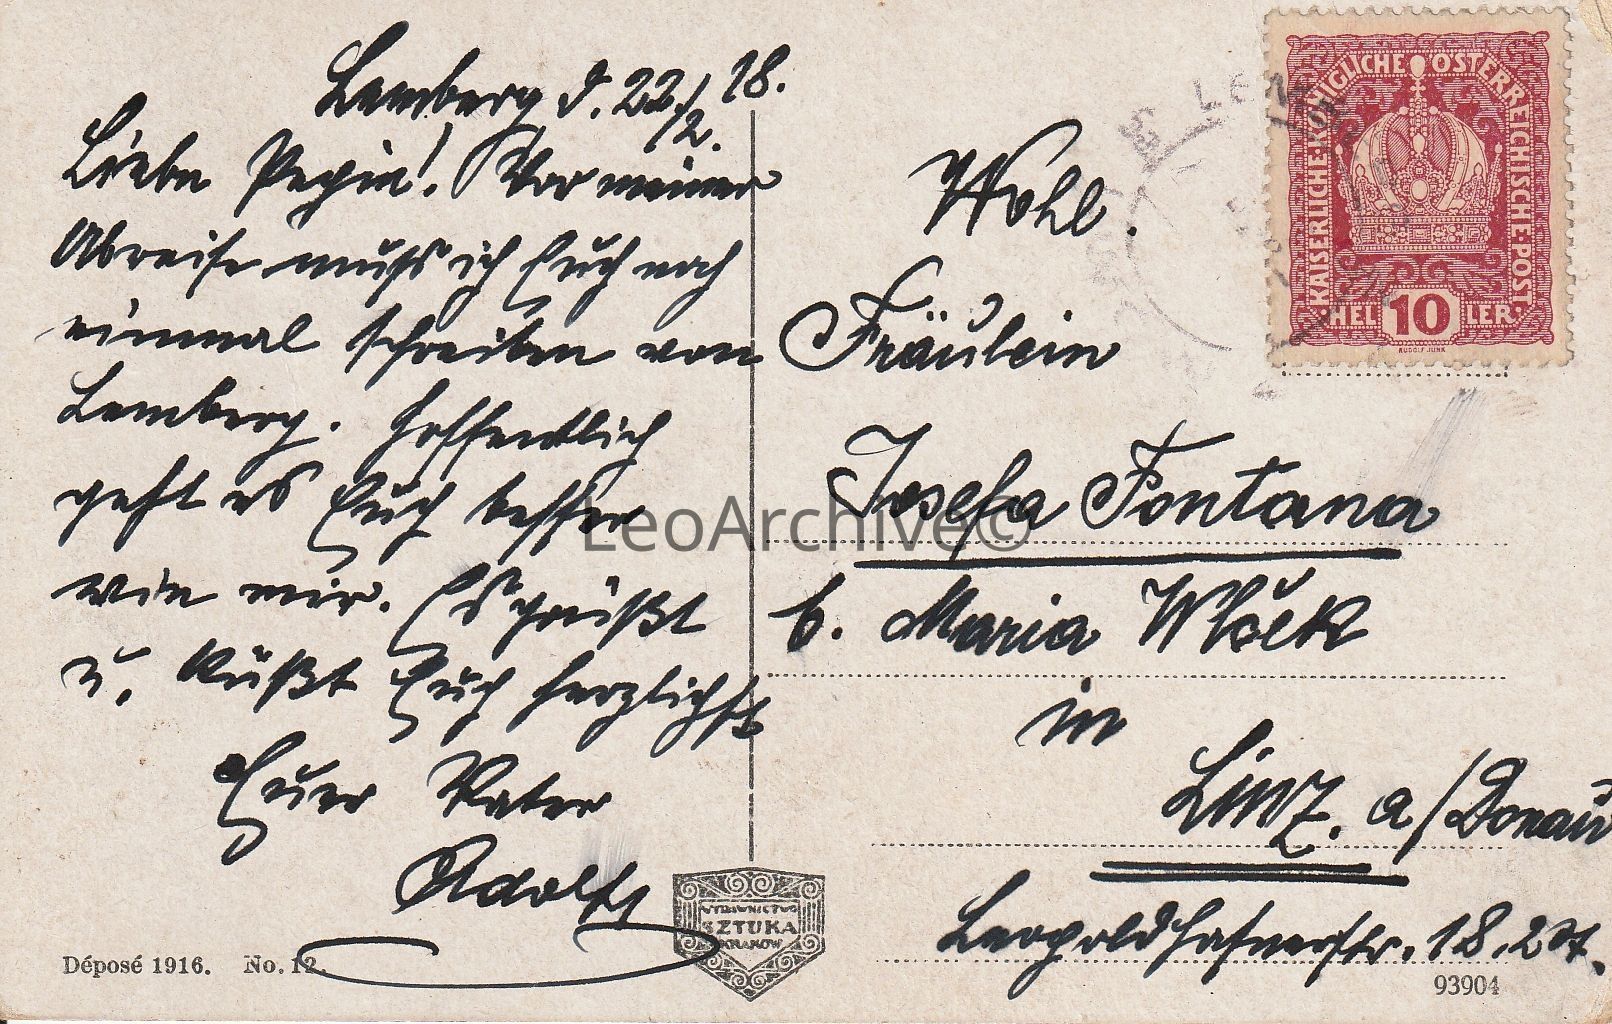 Lemberg d. 22/2. 18.
Liebe Pepin! Vor meiner
Abreise muss ich Euch noch
einmal schreiben von
Lemberg. Hoffentlich
geht es Euch besser
wie mir. Es grüßt
u. küßt Euch herzlichst
Euer Vater
Adolf
Wohl.
Fräulein
Josefa Fontana
b. Maria Wlček
in
Linz. a/Donau
Leopoldhafnerstr. 18. 2 St.
KAISERLICHE KÖNIGLICHE ÖSTERREICHISCHE POST
10
HELLER
RUDOLF JUNK
WYDAWNICTWO
SZTUKA
KRAKÓW
Déposé 1916. No. 12.
93904
LeoArchive©